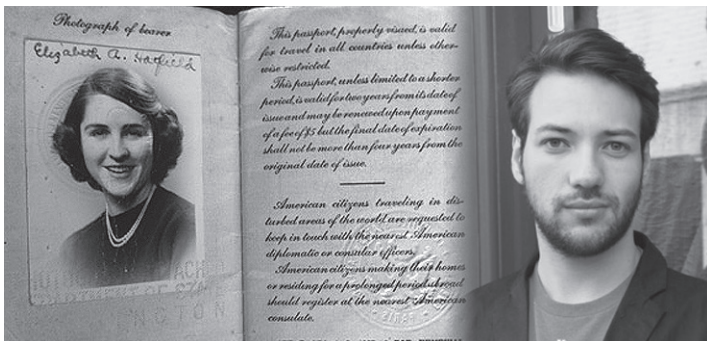 Photograph of bearer
Elizabeth A. Hatfield
This passport, properly visaed, is valid
for travel in all countries unless other-
wise restricted.
This passport, unless limited to a shorter
period, is valid for two years from its date of
issue and may be renewed upon payment
of a fee of $5 but the final date of expiration
shall not be more than four years from the
original date of issue.
American citizens traveling in dis-
turbed areas of the world are requested to
keep in touch with the nearest American
diplomatic or consular officers.
American citizens making their homes
or residing for a prolonged period abroad
should register at the nearest American
consulate.